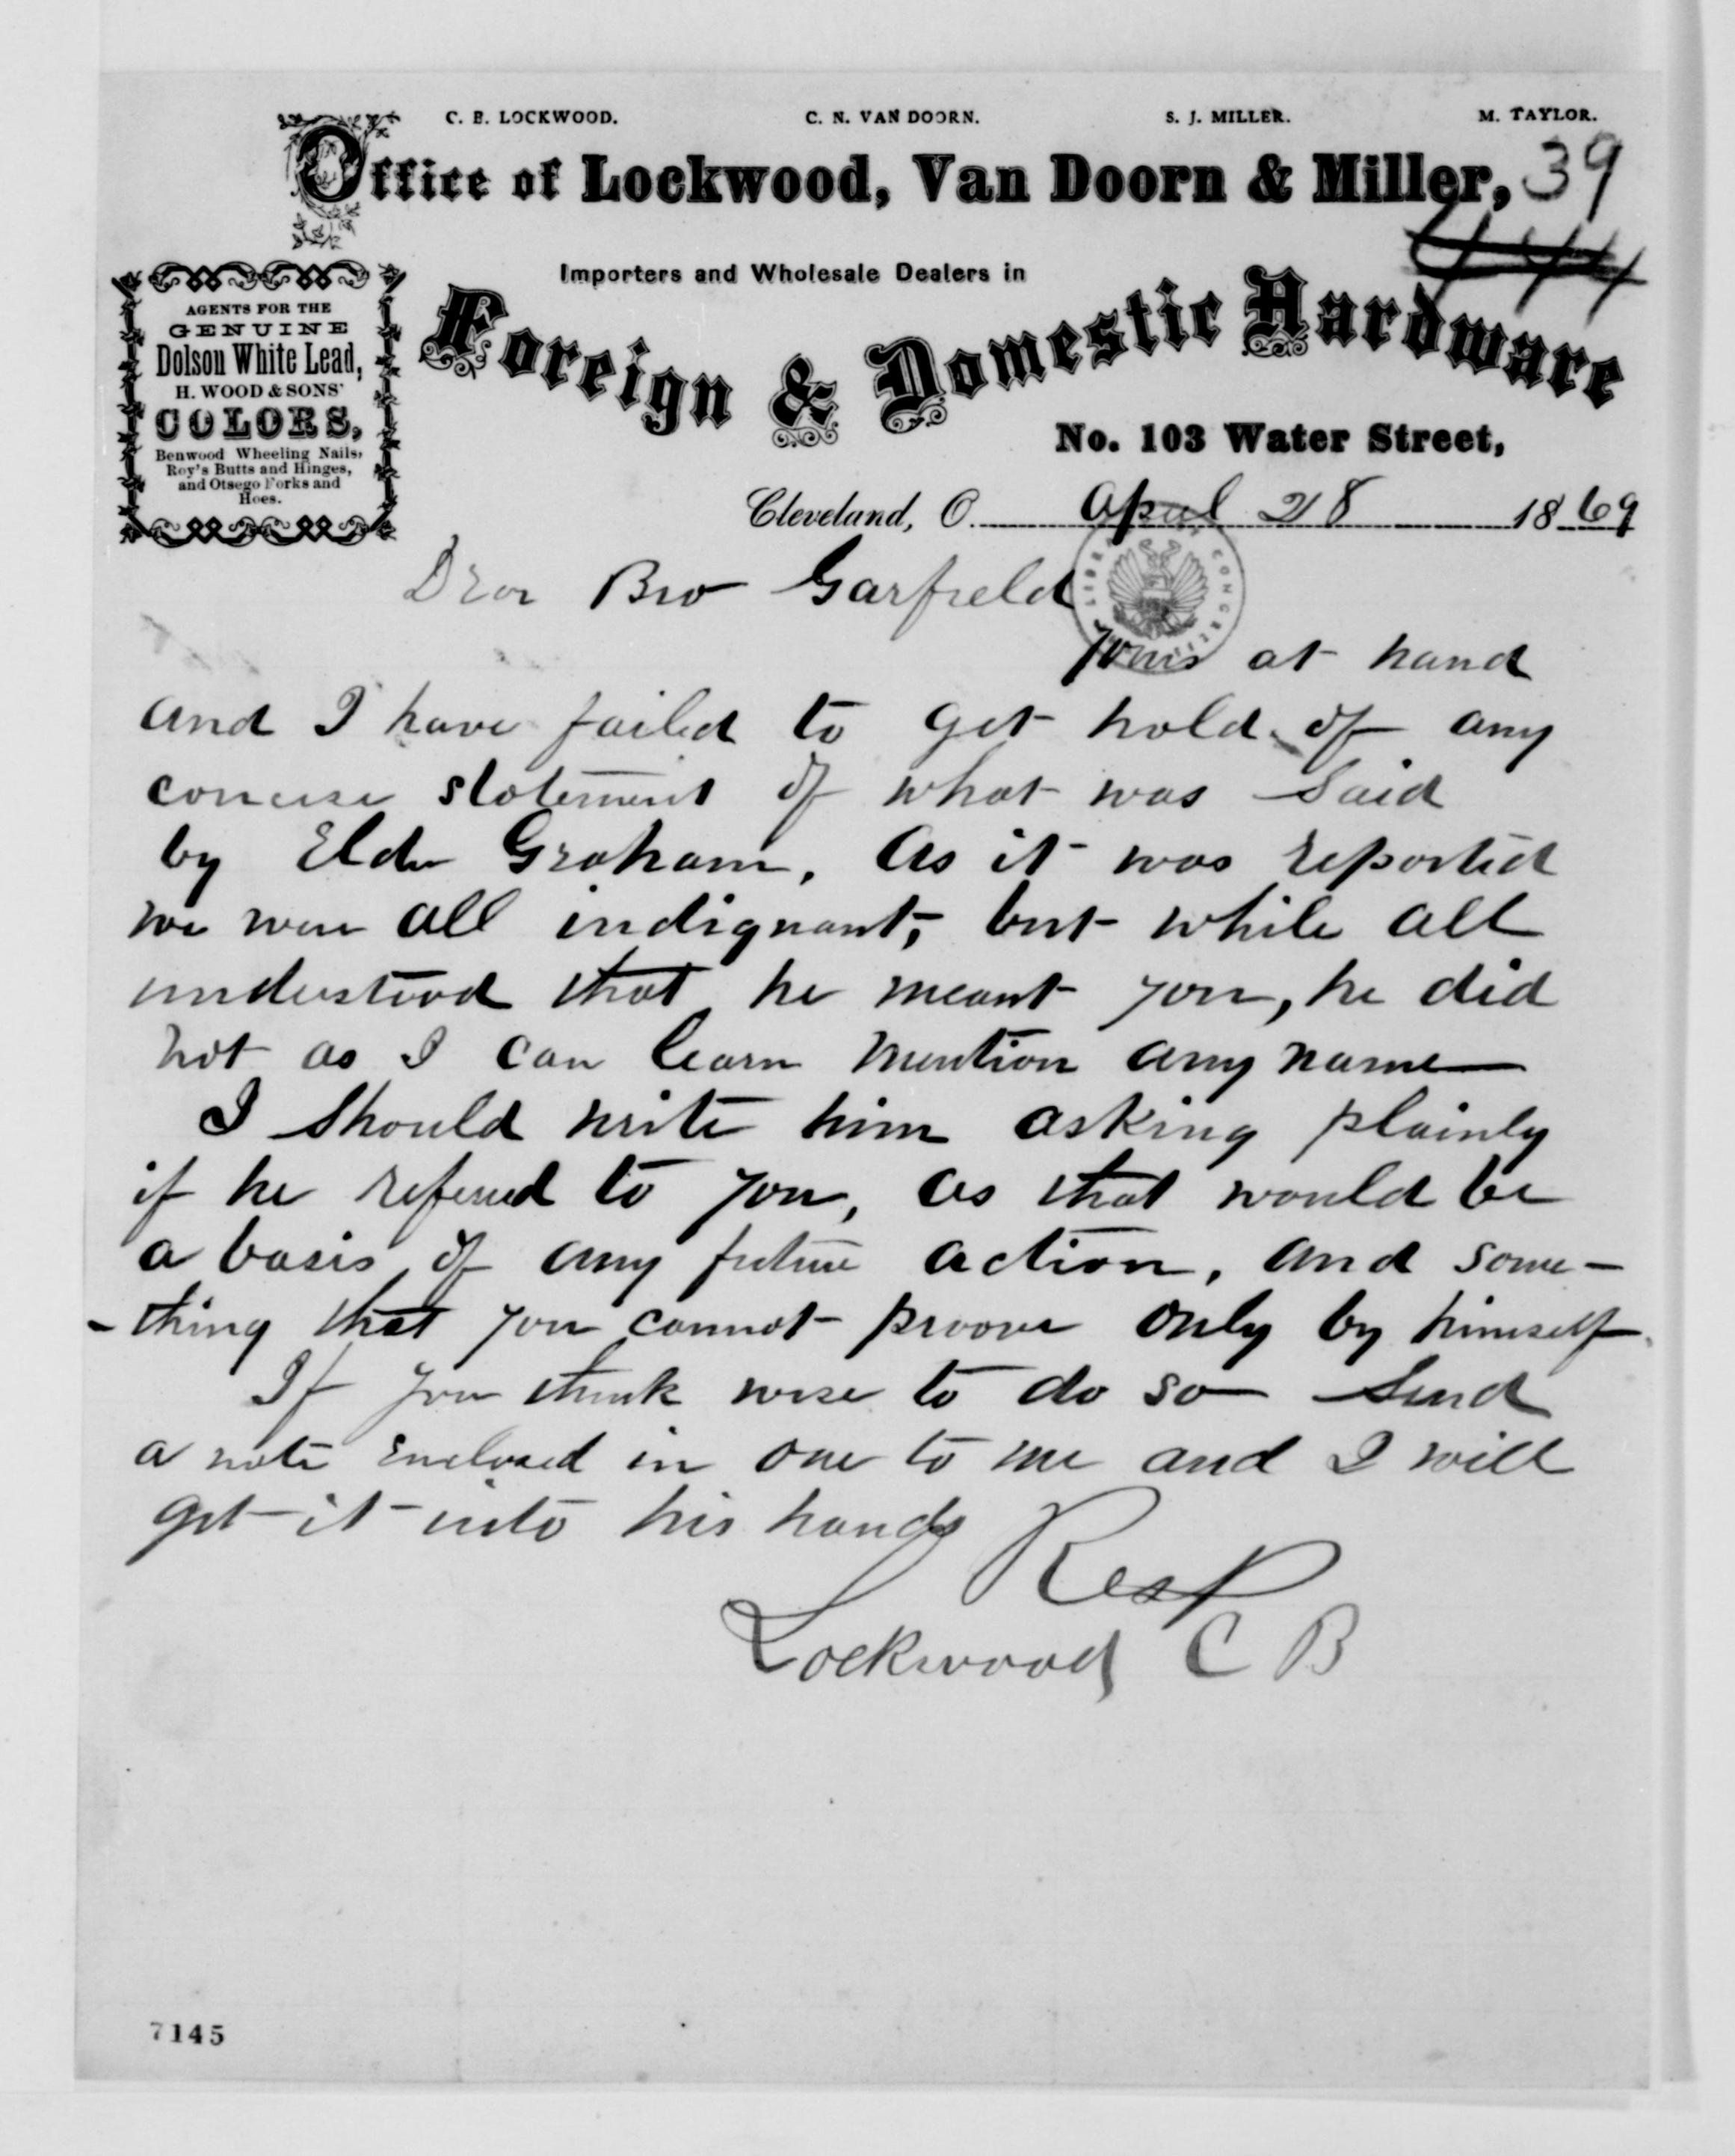 C. B. LOCKWOOD. C. N. VAN DOORN. S. J. MILLER. M. TAYLOR.
Office of Lockwood, Van Doorn & Miller, 39
444
Importers and Wholesale Dealers in
Foreign & Domestic Hardware
No. 103 Water Street,
AGENTS FOR THE
GENUINE
Dolson White Lead,
H. WOOD & SONS'
COLORS,
Benwood Wheeling Nails,
Roy's Butts and Hinges,
and Otsego Forks and
Hoes.
Cleveland, O. April 28 1869
Dear Bro Garfield
Yours at hand
and I have failed to get hold of any
concise statement of what was said
by Elder Graham, As it was reported
we were all indignant, but while all
understood that he meant you, he did
not as I can learn mention any name
I should write him asking plainly
if he referred to you, as that would be
a basis of any future action, and some-
-thing that you cannot proove only by himself.
If you think wise to do so send
a note enclosed in one to me and I will
get it into his hands
Resp
Lockwood C B
7145